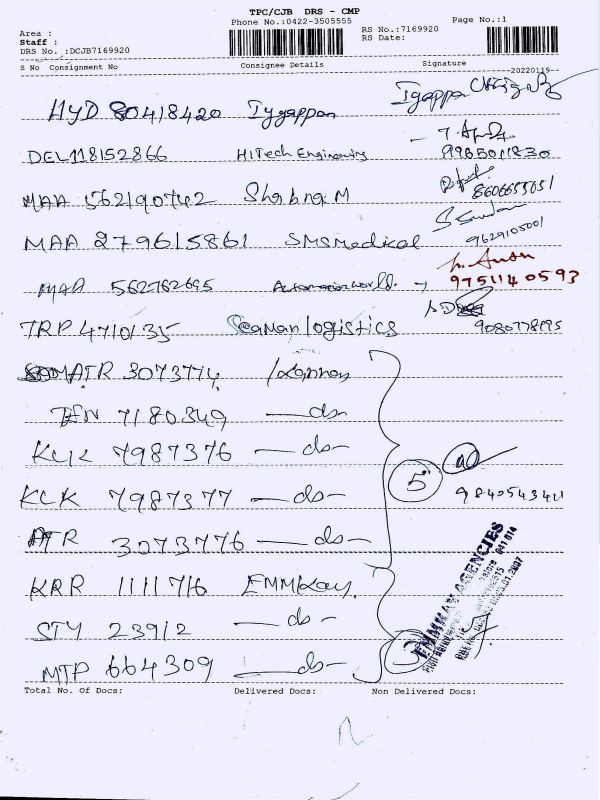 TPC/CJB DRS - CMP
Phone No.:0422-3505555
Page No.:1
Area :
Staff :
DRS No. :DCJB7169920
RS No.:7169920
RS Date:
S No Consignment No Consignee Details Signature
20220119
HYD 80418420 Iyyappan Iyappan
DEL118152866 HITech Engineering
9965011830
MAA 562190742 Shabna M
8606655051
MAA 279615861 SMSmedical
9629105001
MAA 562762695 Automation world.
9751140593
TRP 4710135 Seaman logistics
9080778195
ATR 3073774
7180349 -do-
KLK 7987376 -do-
KLK 7987377 -do-
5
9840543411
ATR 3073776 -do-
KRR 1111716 EMMKay.
STY 23912 -do-
MTP 664309 -do-
3
AGENCIES
641 014
Total No. Of Docs: Delivered Docs: Non Delivered Docs: